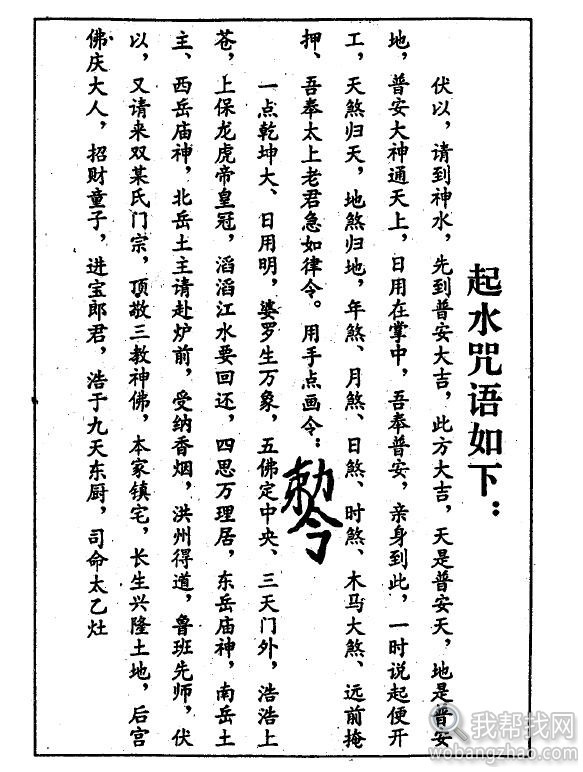 起水咒语如下：
伏以，请到神水，先到普安大吉，此方大吉，天是普安天，地是普安
地，普安大神通天上，日用在掌中，吾奉普安，亲身到此，一时说起便开
工，天煞归天，地煞归地，年煞、月煞、日煞、时煞、木马大煞、远前掩
押、吾奉太上老君急如律令。用手点画令：
勅令
一点乾坤大、日用明，婆罗生万象，五佛定中央、三天门外，浩浩上
苍，上保龙虎帝皇冠，滔滔江水要回还，四思万理居，东岳庙神，南岳土
主、西岳庙神，北岳土主请赴炉前，受纳香烟，洪州得道，鲁班先师，伏
以，又请来双某氏门宗，顶敬三教神佛，本家镇宅，长生兴隆土地，后宫
佛庆大人，招财童子，进宝郎君，浩于九天东厨，司命太乙灶
我帮找网
wobangzhao.com